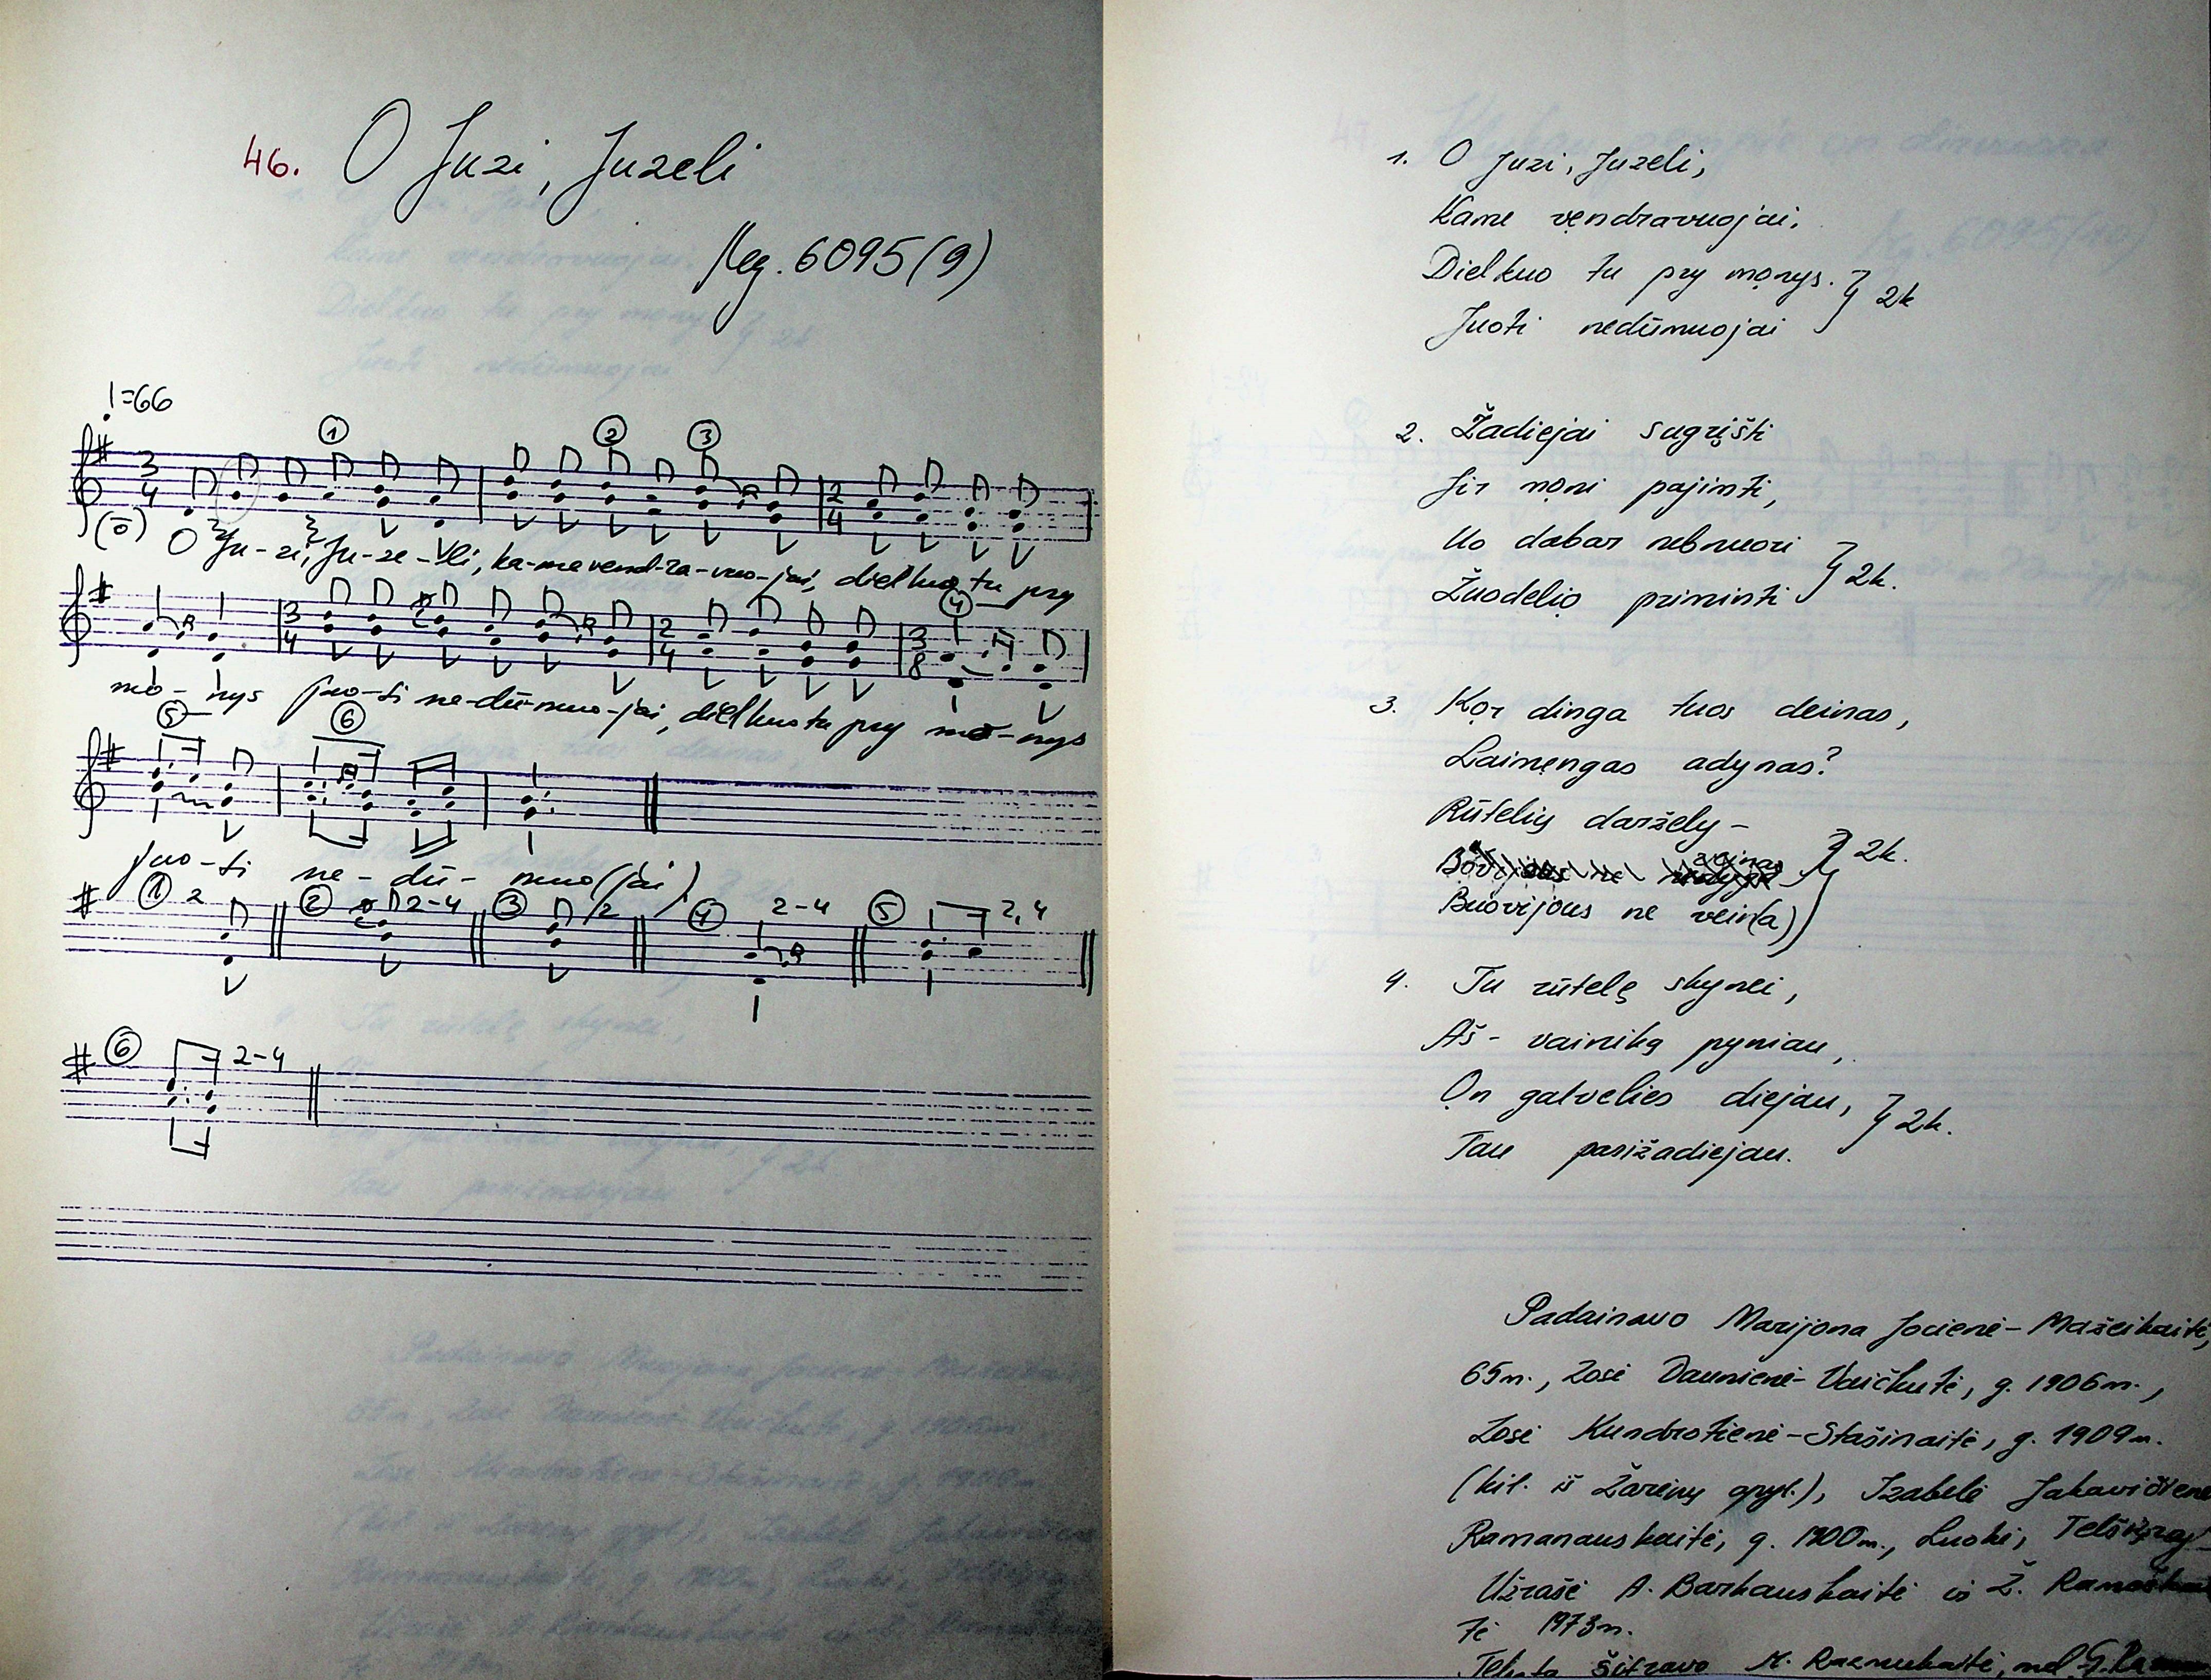 46. O Juzi, Juzeli
Kg. 6095(9)
♩=66
① ② ③
3 4 2 4
(ō) O Ju-zi, Ju-ze-li, ka-me vend-ra-vuo-jai, diel kuo tu pry
④
3 4 2 4 3 8
mo-nys juo-ti ne-dū-muo-jai, diel kuo tu pry mo-nys
⑤ ⑥
juo-ti ne-dū-muo(jai)
① 2 ② 2-4 ③ 2 ④ 2-4 ⑤ 2,4
⑥ 2-4
1. O Juzi, Juzeli,
Kame vẹndravuojai,
Diel kuo tu pry mọnys. } 2k
Juoti nedūmuojai
2. Žadiejai sugrịšti
Jir mọni pajimti,
Ko dabar nebnuori } 2k.
Žuodeliọ priminti
3. Kọr dinga tuos deinas,
Laimẹngas adynas?
Rūtelių darželų - } 2k.
Buovijous ne vein(a)
4. Tu rūtelę skynei,
Aš - vainiką pyniau,
Ọn galvelies diejau, } 2k.
Tau pasižadiejau.
Padainavo Marijona Jocienė-Mašeikaitė,
65m., Zosė Daunienė-Vaičkutė, g. 1906m.,
Zosė Kundrotienė-Stašinaitė, g. 1909m.
(kil. iš Žarėnų apyl.), Izabelė Jakavičienė
Ramanauskaitė, g. 1900m., Luokė, Telšių raj.
Užrašė A. Barkauskaitė ir Ž.
tė 1973m.
Tekstą šifravo